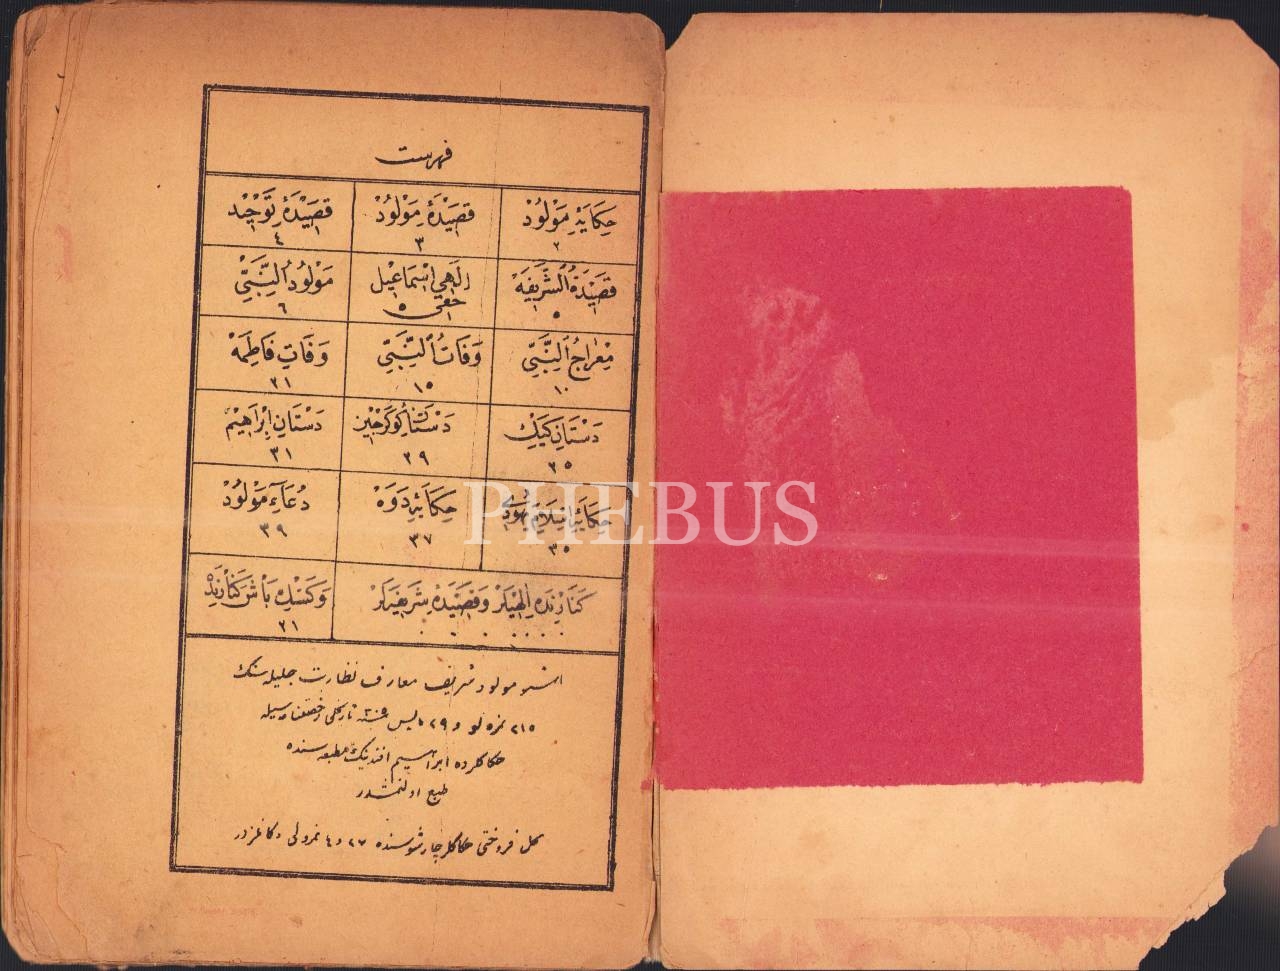 فهرست
حِكَايَۀِ مَوْلُودْ
٢
قَصِيْدَۀِ مَوْلُودْ
٣
قَصِيْدَۀِ تَوْحِيْد
٤
قَصِيْدَةُ الشَّرِيفَهْ
٥
اِلٰهِي اِسْمَاعِيْل حقى
٥
مَوْلُودُ النَّبِيِّ
٦
مِعْرَاجُ النَّبِيِّ
١٠
وَفَاتُ النَّبِيِّ
١٥
وَفَاتِ فَاطِمَهْ
٢١
دَسْتَانِ كَيِكْ
٢٥
دَسْتَانِ كُوكَرْجِيْن
٢٩
دَسْتَانِ اِبْرَاهِيْم
٣١
حِكَايَۀِ
٣٥
حِكَايَۀِ دَوَهْ
٣٧
دُعَاءِ مَوْلُودْ
٣٩
كَنَارِنْدَه اِلٰهِيلَرْ وَ قَصِيْدَۀِ شَرِيفَهلَرْ
وَكَسْكِ بَاش كَنَارِنْدَه
٢١
اشبو مولود شريف معارف نظارت جليله سنك
٢١٥ نمره لو و ٢٩ مايس سنه ٣٠٥ تاريخلى رخصتنامه سيله
حكاكلرده ابراهيم افندينك مطبعه سنده
طبع اولنمشدر
محل فروختى حكاكلر چارشوسنده ٢٧ و ٤ نمرولى دكانلردر
PHEBUS